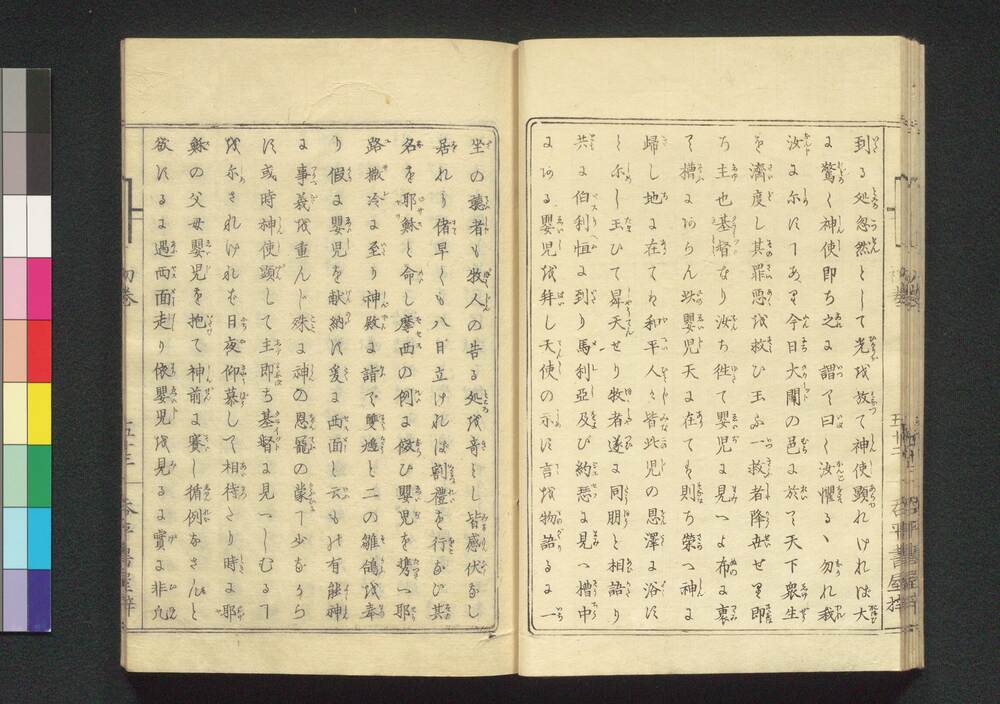 到る処忽然として光を放て神使顕れければ大
に驚く神使即ち之に謂て曰く汝懼るゝ勿れ我
汝に示にてあり今日大闢の邑に於て天下衆生
を濟度し其罪悪を救ひ玉ふ一救者降世せり即
ち主也基督なり汝ち徃て嬰児に見へよ布に裹
て槽にあらん此嬰児天に在ても則ち榮へ神に
歸し地に在ては和平人々皆此児の恩澤に浴に
と示し玉ひて昇天せり牧者遂に同朋と相語り
共に伯利恒に到り馬利亞及び約瑟に見へ槽中
にある嬰児を拜し天使の示に言を物語るに一
坐の聽者も牧人の告る処を竒とし皆感伏なし
居れり偖早くも八日立ければ割禮を行なひ其
名を耶穌と命し摩西の例に傚ひ嬰児を携へ耶
路撒冷に至り神殿に詣で雙鳩と二の雛鴿を幸
り假に嬰児を献納に爰に西面と云もの有能神
に事義を重んじ殊に神の恩寵の蒙て少なから
に或時神使顕して主即ち基督に見へしむるて
を示されければ日夜仰慕して相待たり時に耶
穌の父母嬰児を抱て神前に賽し循例をさんと
欲にるに過西面走り依嬰児を見るに實に非凡
初巻
五十二
五十三